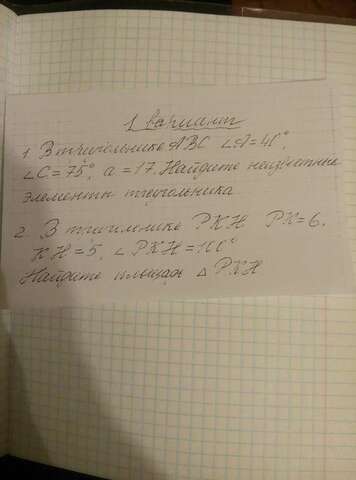 1 вариант
1. В треугольнике ABC ∠A=41°,
∠C=75°, a=17. Найдите неизвестные
элементы треугольника
2. В треугольнике PKH PK=6,
KH=5, ∠PKH=100°
Найдите площадь △PKH